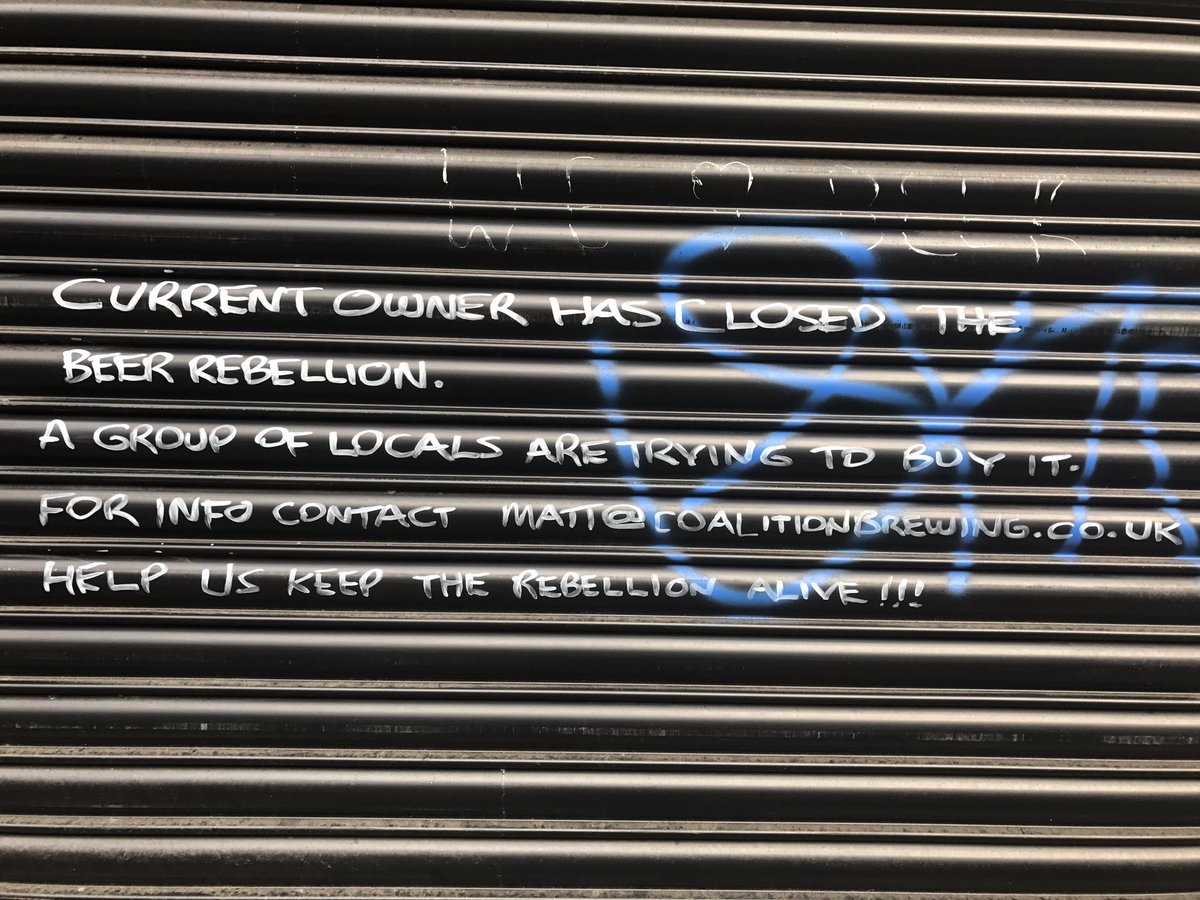 WE ♡ BEER
CURRENT OWNER HAS CLOSED THE
BEER REBELLION.
A GROUP OF LOCALS ARE TRYING TO BUY IT.
FOR INFO CONTACT MATT@COALITIONBREWING.CO.UK
HELP US KEEP THE REBELLION ALIVE!!!